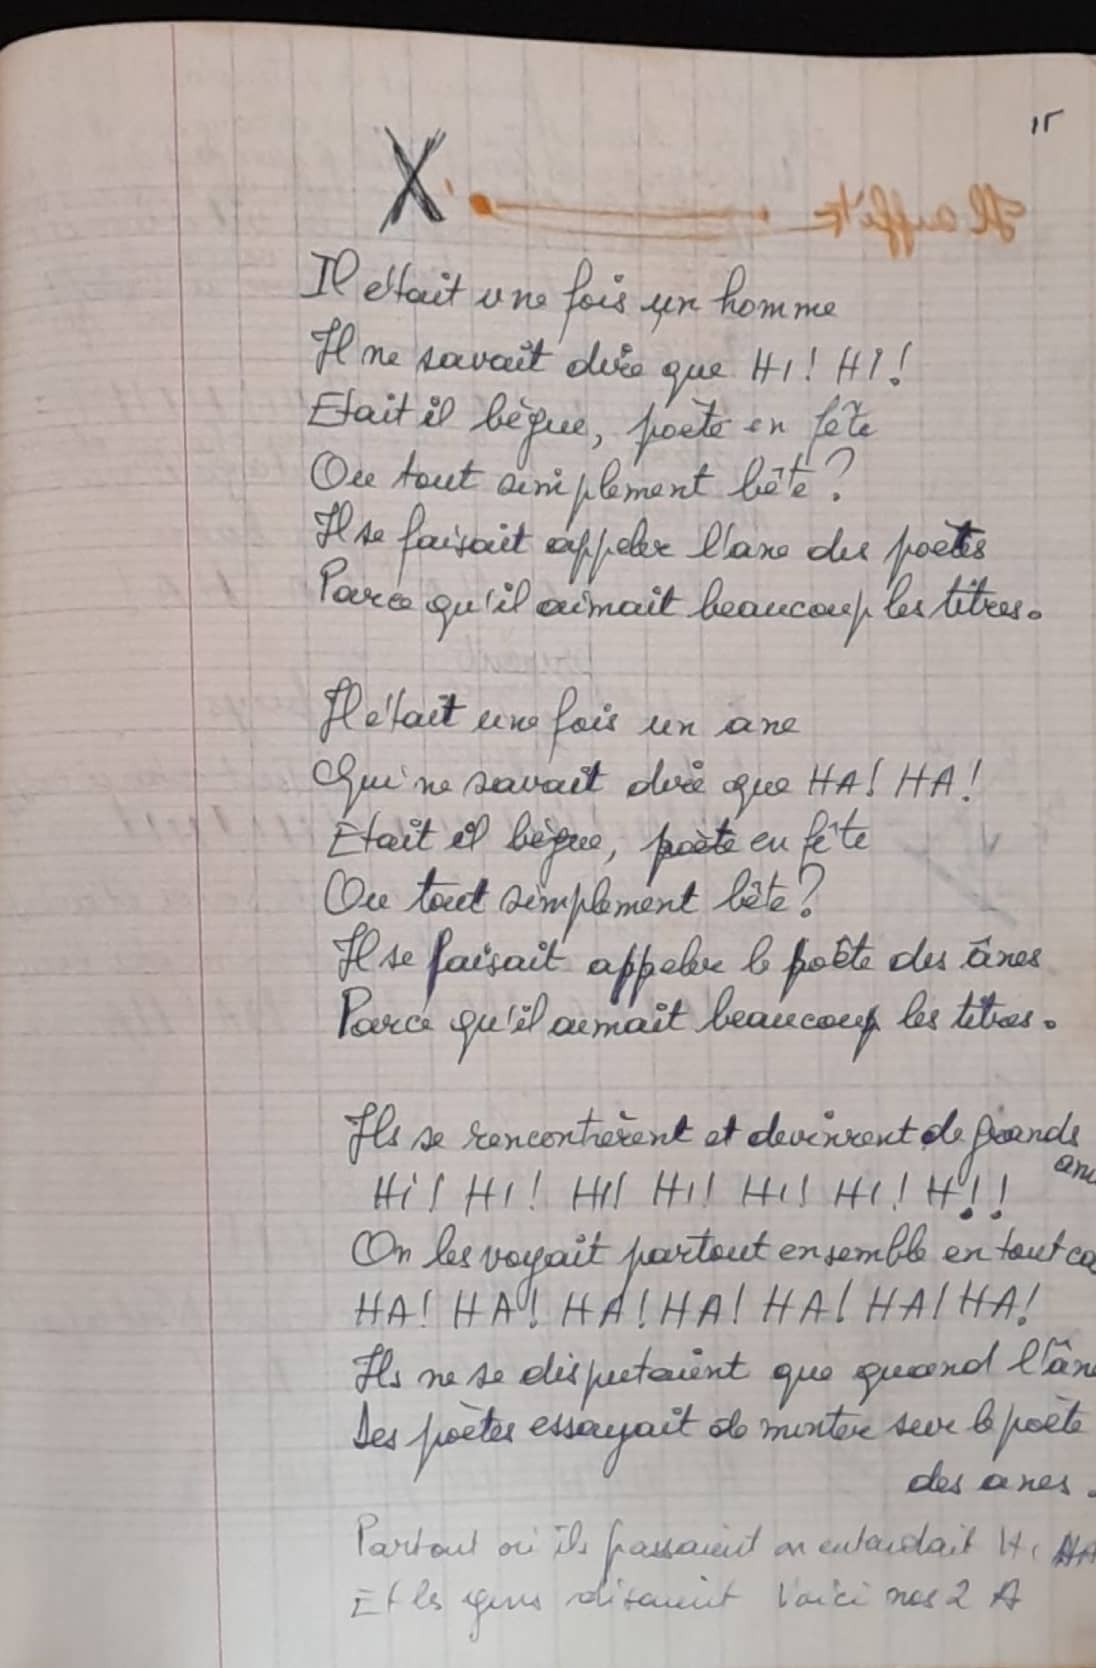 15
X
Il était une fois un homme
Il ne savait dire que HI! HI!
Etait il bègue, poète en fête
Ou tout simplement bête?
Il se faisait appeler l'ane des poètes
Parce qu'il aimait beaucoup les titres.
Il était une fois un ane
Qui ne savait dire que HA! HA!
Etait il bègue, poète en fête
Ou tout simplement bête?
Il se faisait appeler le poète des ânes
Parce qu'il aimait beaucoup les titres.
Ils se rencontrèrent et devinrent de grands
Hi! HI! HI! HI! HI! HI! HI!
On les voyait partout ensemble en tout
HA! HA! HA! HA! HA! HA! HA!
Ils ne se disputaient que quand l'âne
Des poètes essayait de monter sur le poète
des anes.
Partout où ils passaient on entendait Hi HA
Et les gens disaient Voici nos 2 A